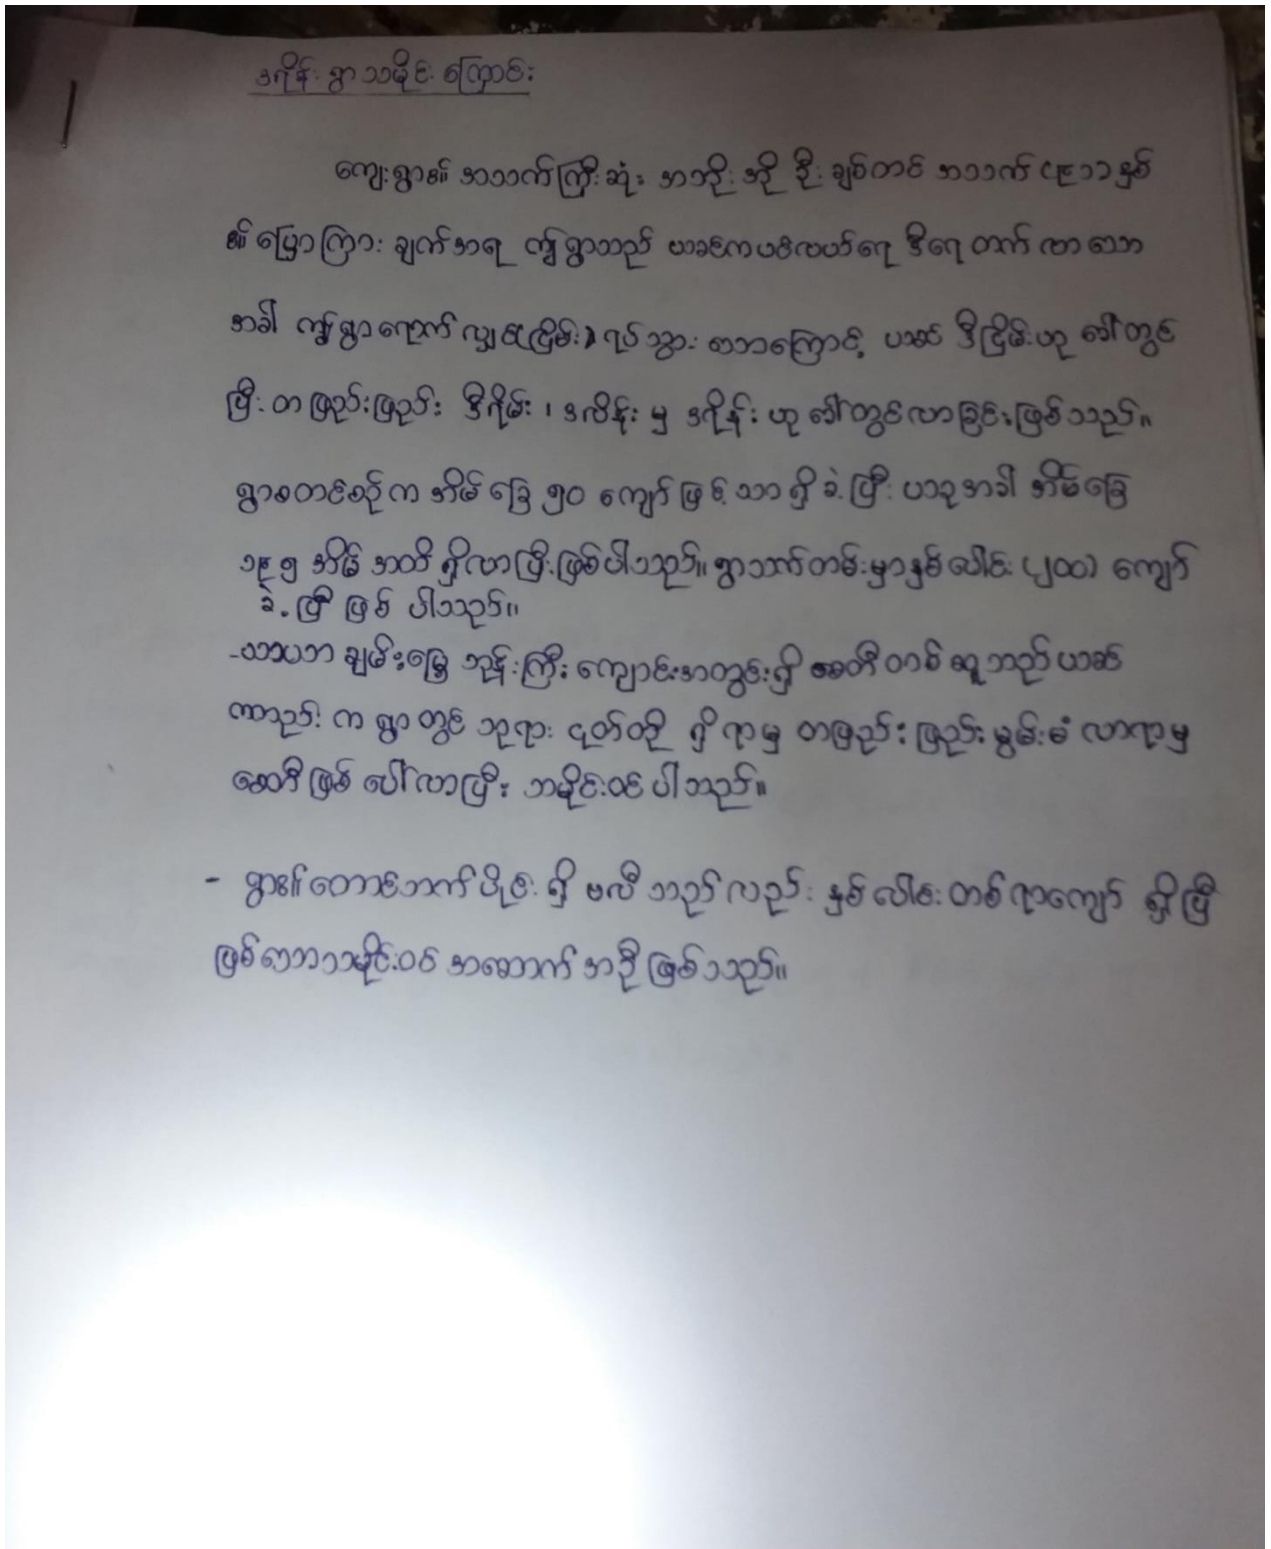 ဒရိန်းရွာသမိုင်းကြောင်း
ကျေးရွာ၏ အသက်ကြီးဆုံး အဘိုးအို ဦးချစ်တင် အသက် (၉၁) နှစ်
၏ ပြောကြားချက်အရ ဤရွာသည် ယခင်ကပင်လယ်ရေ ဒီရေ တက် လာသော
အခါ ဤရွာရောက်လျှင် (ငြိမ်း) ရပ်သွား သောကြောင့် ယခင် ဒီငြိမ်းဟု ခေါ်တွင်
ပြီး တဖြည်းဖြည်း ဒီရိမ်း၊ ဒလိန်း မှ ဒရိန်း ဟု ခေါ်တွင်လာခြင်းဖြစ်သည်။
ရွာစတင်စဉ်က အိမ်ခြေ ၅၀ ကျော် ဖြင့်သာ ရှိခဲ့ပြီး ယခုအခါ အိမ်ခြေ
၁၉၅ အိမ် အထိ ရှိလာပြီးဖြစ်ပါသည်။ ရွာသက်တမ်းမှာနှစ်ပေါင်း (၂၀၀) ကျော်
ခဲ့ပြီ ဖြစ် ပါသည်။
-သာယာ ချမ်းမြေ့ ဘုန်းကြီးကျောင်းအတွင်းရှိ စေတီတစ်ဆူသည် ယခင်
ကတည်းက ရွာတွင် ဘုရား ငုတ်တို ရှိရာမှ တဖြည်းဖြည်းမွမ်းမံ လာရာမှ
စေတီဖြစ်ပေါ်လာပြီး သမိုင်းဝင်ပါသည်။
- ရွာ၏ တောင်ဘက်ပိုင်းရှိ ဗလီသည်လည်း နှစ်ပေါင်းတစ်ရာကျော် ရှိပြီ
ဖြစ်သော သမိုင်းဝင် အဆောက်အဦဖြစ်သည်။